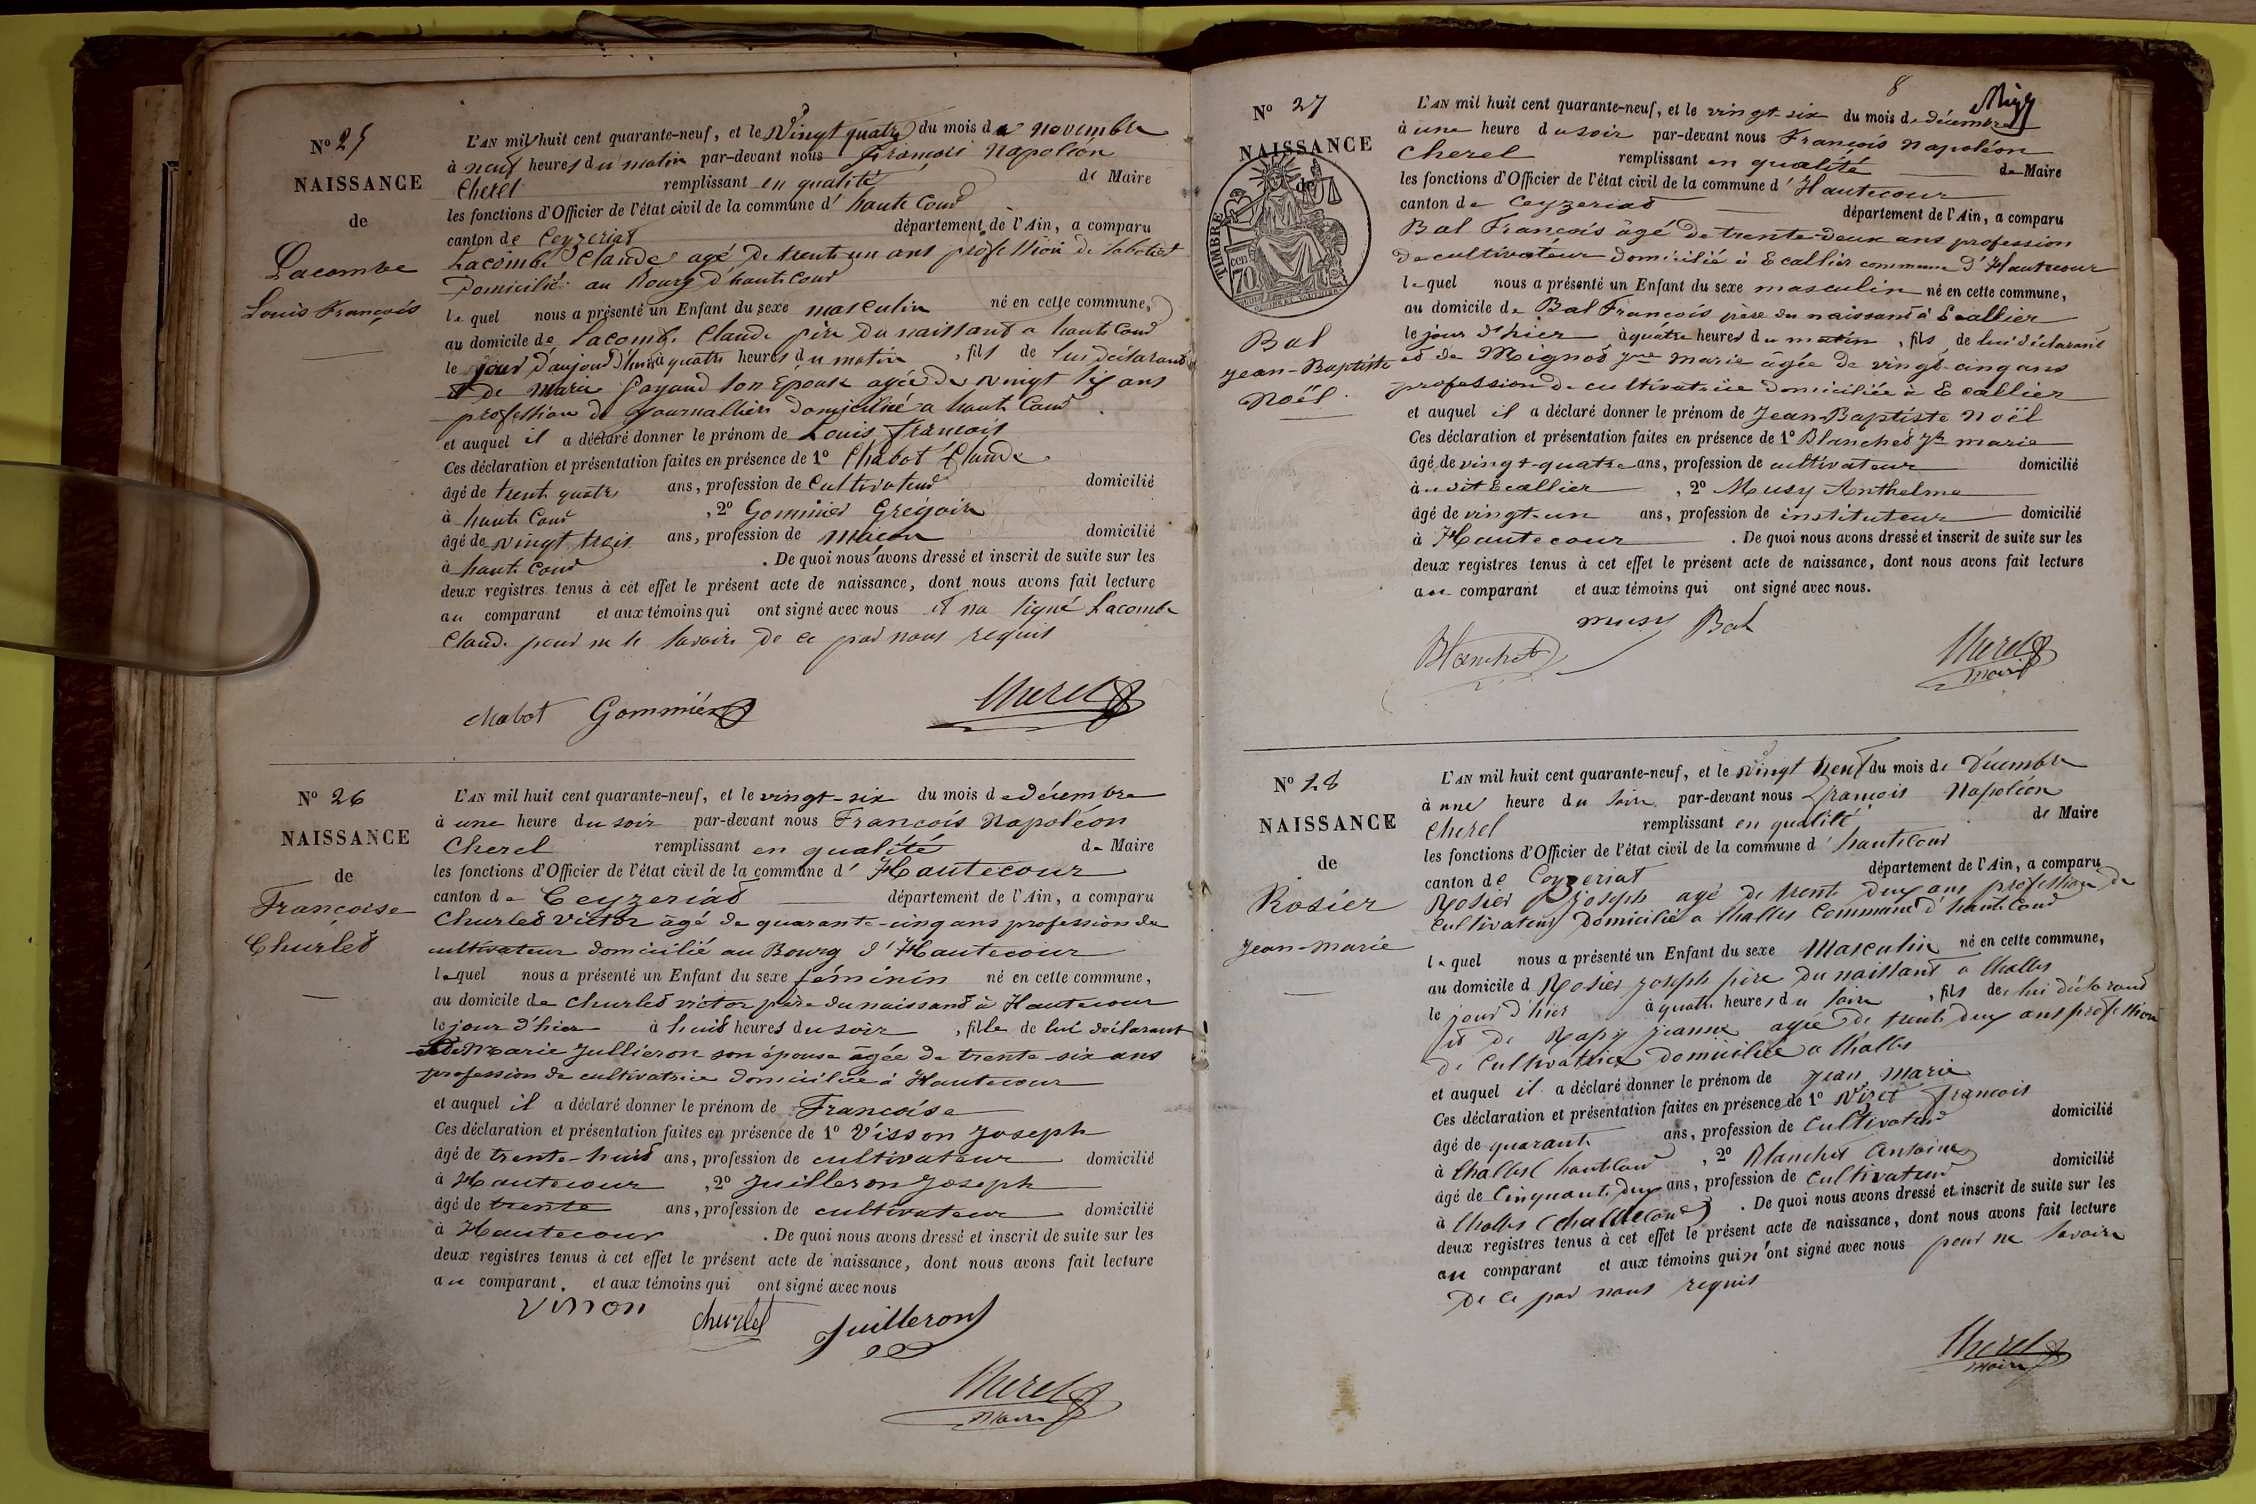 N° 25
NAISSANCE
de
Lacombe
Louis François
L'AN mil huit cent quarante-neuf, et le Vingt quatre du mois de novembre
à neuf heures du matin par-devant nous François Napoléon
Cherel remplissant en qualité de Maire
les fonctions d'Officier de l'état civil de la commune d' haute Cour
canton de Ceyzeriat département de l'Ain, a comparu
Lacombe Claude agé de trente un ans profession de sabotier
Domicilié au Bourg d'haute Cour
le quel nous a présenté un Enfant du sexe masculin né en cette commune,
au domicile de Lacombe Claude père du naissant a haute Cour
le jour d'aujourd'hui à quatre heures du matin, fils de lui déclarant
et de Marie son Épouse agée de vingt six ans
profession de journallière domiciliée a haute Cour
et auquel il a déclaré donner le prénom de Louis François
Ces déclaration et présentation faites en présence de 1° Chabot Claude
âgé de trente quatre ans, profession de Cultivateur domicilié
à haute Cour, 2° Gommier Grégoire
âgé de vingt trois ans, profession de maçon domicilié
à haute Cour. De quoi nous avons dressé et inscrit de suite sur les
deux registres tenus à cet effet le présent acte de naissance, dont nous avons fait lecture
au comparant et aux témoins qui ont signé avec nous et na signé Lacombe
Claude pour ne le savoir de ce par nous requis
chabot Gommier Cherel
N° 26
NAISSANCE
de
Françoise
Churlet
L'AN mil huit cent quarante-neuf, et le vingt-six du mois de décembre
à une heure du soir par-devant nous François Napoléon
Cherel remplissant en qualité de Maire
les fonctions d'Officier de l'état civil de la commune d' Hautecour
canton de Ceyzeriat département de l'Ain, a comparu
Churlet Victor âgé de quarante-cinq ans profession de
cultivateur domicilié au Bourg d'Hautecour
lequel nous a présenté un Enfant du sexe féminin né en cette commune,
au domicile de Churlet victor père du naissant à Hautecour
le jour d'hier à huit heures du soir, fille de lui déclarant
et de Marie Jullieron son épouse âgée de trente-six ans
profession de cultivatrice domiciliée à Hautecour
et auquel il a déclaré donner le prénom de Françoise
Ces déclaration et présentation faites en présence de 1° Visson Joseph
âgé de trente-huit ans, profession de cultivateur domicilié
à Hautecour, 2° Juilleron Joseph
âgé de trente ans, profession de cultivateur domicilié
à Hautecour. De quoi nous avons dressé et inscrit de suite sur les
deux registres tenus à cet effet le présent acte de naissance, dont nous avons fait lecture
au comparant et aux témoins qui ont signé avec nous
Visson churlet Juilleron
Cherel
Maire
8
N° 27
NAISSANCE
de
TIMBRE
70
Bal
Jean-Baptiste
Noël.
L'AN mil huit cent quarante-neuf, et le vingt six du mois de décembre
à une heure du soir par-devant nous François Napoléon
Cherel remplissant en qualité de Maire
les fonctions d'Officier de l'état civil de la commune d' Hautecour
canton de Ceyzeriat département de l'Ain, a comparu
Bal François âgé de trente-deux ans profession
de cultivateur domicilié à Ecallier commune d'Hautecour
lequel nous a présenté un Enfant du sexe masculin né en cette commune,
au domicile de Bal François père du naissant à Ecallier
le jour d'hier à quatre heures du matin, fils de lui déclarant
et de Mignot Jne Marie âgée de vingt-cinq ans
profession de cultivatrice domiciliée à Ecallier
et auquel il a déclaré donner le prénom de Jean-Baptiste Noël
Ces déclaration et présentation faites en présence de 1° Blanchet Jh marie
âgé de vingt-quatre ans, profession de cultivateur domicilié
au dit Ecallier, 2° Musy Anthelme
âgé de vingt-un ans, profession de instituteur domicilié
à Hautecour. De quoi nous avons dressé et inscrit de suite sur les
deux registres tenus à cet effet le présent acte de naissance, dont nous avons fait lecture
au comparant et aux témoins qui ont signé avec nous.
Blanchet musy Bal Cherel
Maire
N° 28
NAISSANCE
de
Rosier
Jean-marie
L'AN mil huit cent quarante-neuf, et le vingt neuf du mois de Décembre
à une heure du soir par-devant nous françois Napoléon
Cherel remplissant en qualité de Maire
les fonctions d'Officier de l'état civil de la commune d' hautecour
canton de Ceyzeriat département de l'Ain, a comparu
Rosier Joseph agé de trente deux ans profession de
cultivateur Domicilié a Challes Commune d'haute Cour
le quel nous a présenté un Enfant du sexe Masculin né en cette commune,
au domicile d Rosier joseph père du naissant a Challes
le jour d'hier à quatre heures du soir, fils de lui déclarant
et de Rapy jeanne agée de trente deux ans profession
de Cultivatrice Domiciliée a Challes
et auquel il a déclaré donner le prénom de Jean Marie
Ces déclaration et présentation faites en présence de 1° Viret françois
âgé de quarante ans, profession de Cultivateur domicilié
à Challes hautecour, 2° Blanchet Antoine
âgé de Cinquante deux ans, profession de Cultivateur domicilié
à Challes (hautecour). De quoi nous avons dressé et inscrit de suite sur les
deux registres tenus à cet effet le présent acte de naissance, dont nous avons fait lecture
au comparant et aux témoins qui n'ont signé avec nous pour ne savoir
De ce par nous requis
Cherel
Maire